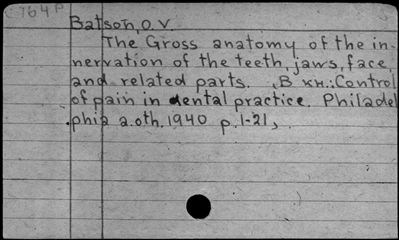 C764P
Batson, O. V.
The Gross anatomy of the in-
nervation of the teeth, jaws, face,
and related parts. В кн.: Control
of pain in dental practice. Philadel
phia a.oth. 1940 p. 1-21,